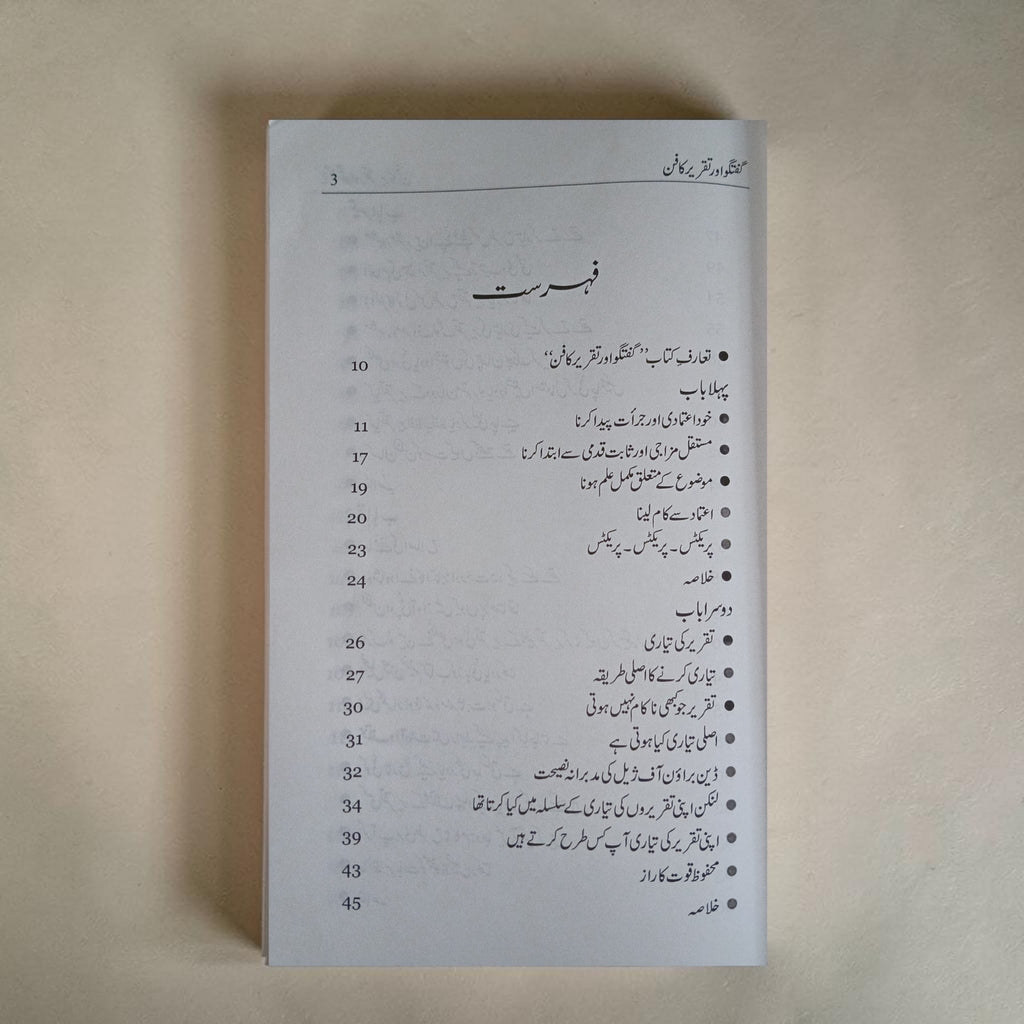 گفتگو اور تقریر کا فن 3
فہرست
● تعارفِ کتاب ”گفتگو اور تقریر کا فن“ 10
پہلا باب
● خود اعتمادی اور جرأت پیدا کرنا 11
● مستقل مزاجی اور ثابت قدمی سے ابتدا کرنا 17
● موضوع کے متعلق مکمل علم ہونا 19
● اعتماد سے کام لینا 20
● پریکٹس ۔ پریکٹس ۔ پریکٹس 23
● خلاصہ 24
دوسرا باب
● تقریر کی تیاری 26
● تیاری کرنے کا اصلی طریقہ 27
● تقریر جو کبھی ناکام نہیں ہوتی 30
● اصلی تیاری کیا ہوتی ہے 31
● ڈین براؤن آف ژیل کی مدبرانہ نصیحت 32
● لنکن اپنی تقریروں کی تیاری کے سلسلہ میں کیا کرتا تھا 34
● اپنی تقریر کی تیاری آپ کس طرح کرتے ہیں 39
● محفوظ قوت کا راز 43
● خلاصہ 45